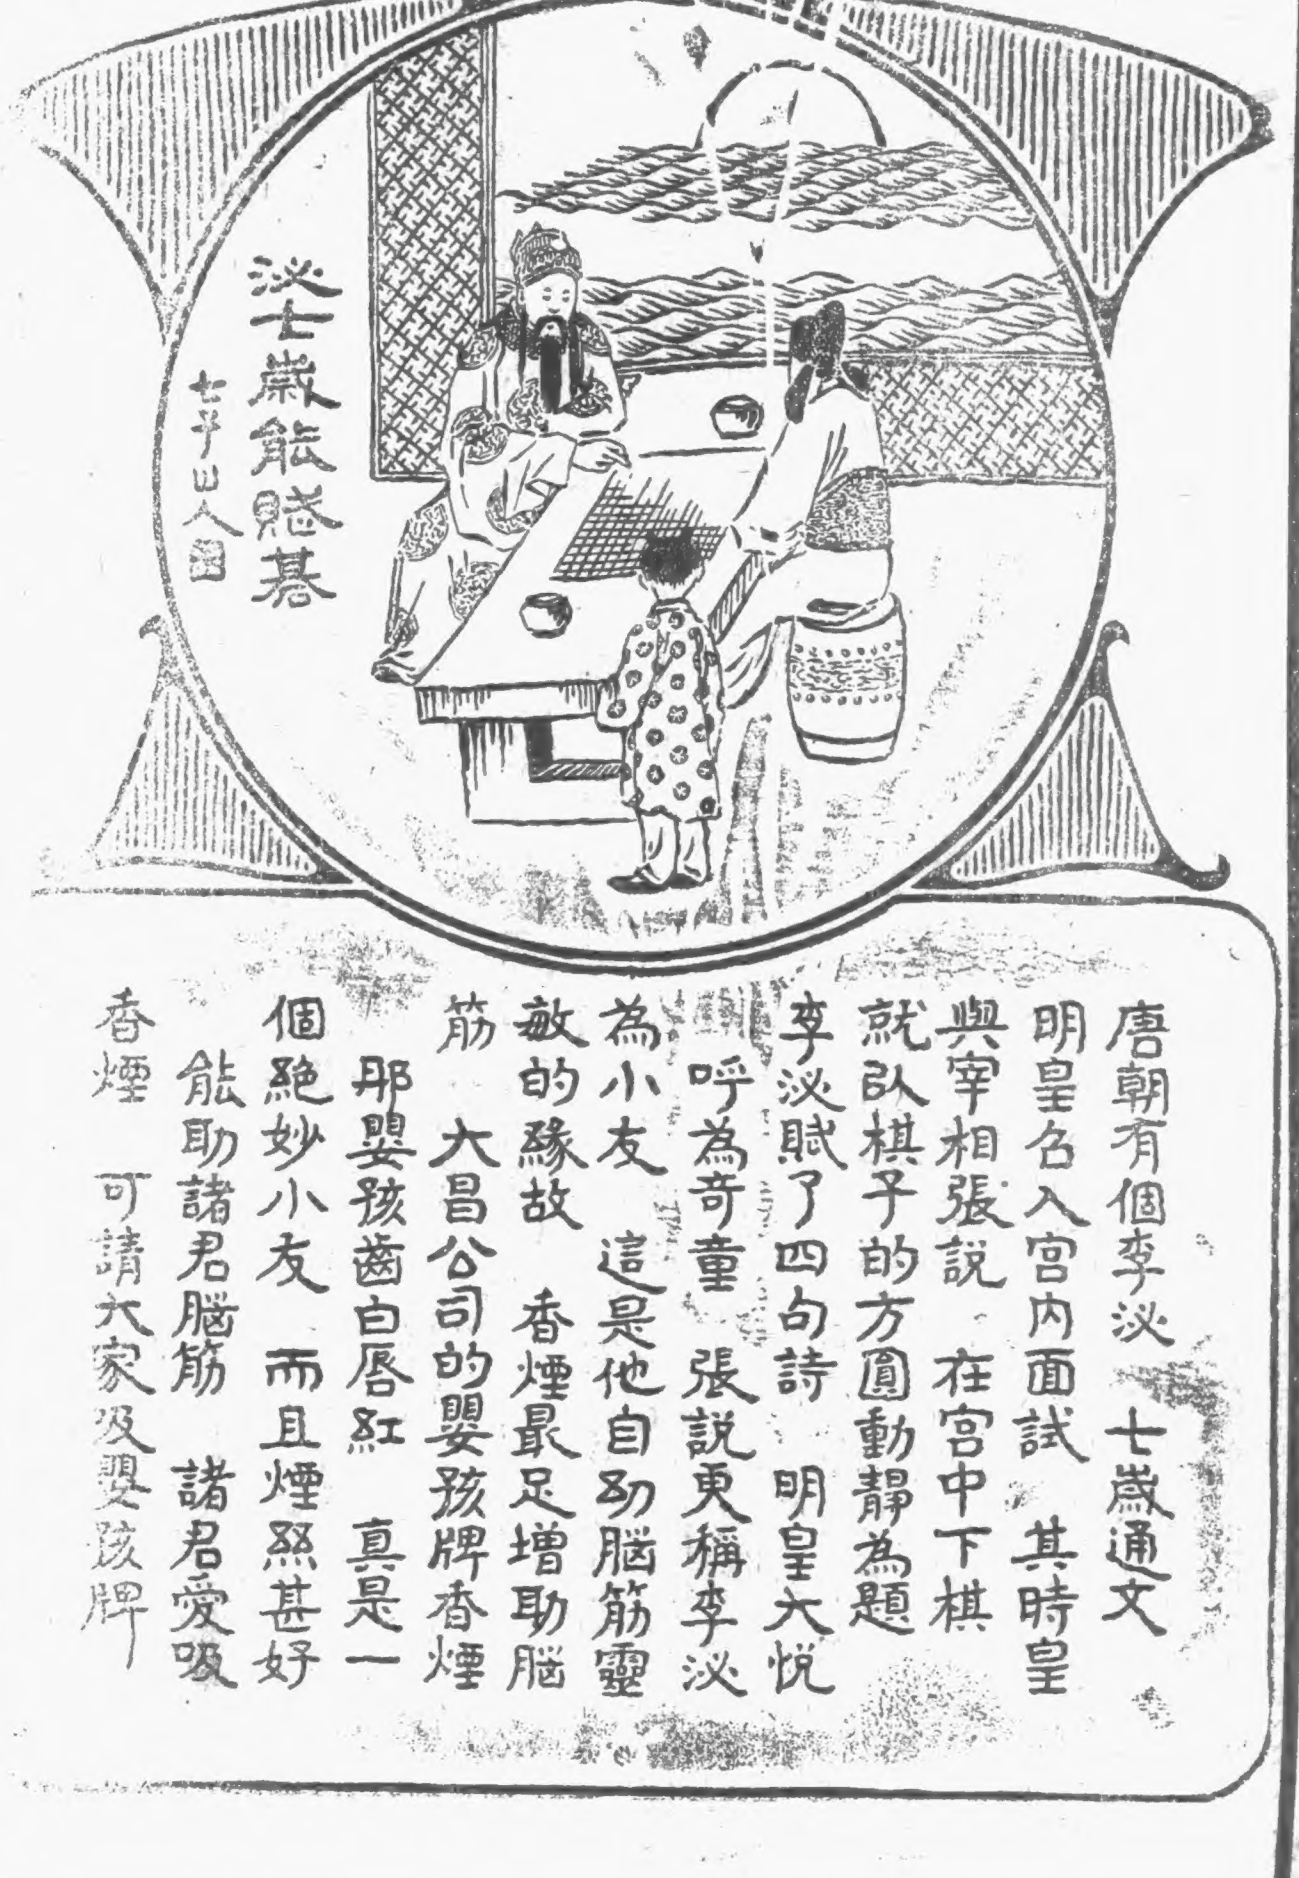 泌七歲能賦棊
七平山人
唐朝有個李泌　七歲通文
明皇召入宮內面試　其時皇
與宰相張說　在宮中下棋
就以棋子的方圓動靜為題
李泌賦了四句詩　明皇大悅
呼為奇童　張說更稱李泌
為小友　這是他自幼腦筋靈
敏的緣故　香煙最足增助腦
筋　大昌公司的嬰孩牌香煙
那嬰孩齒白唇紅　真是一
個絕妙小友　而且煙絲甚好
能助諸君腦筋　諸君愛吸
香煙　可請大家吸嬰孩牌